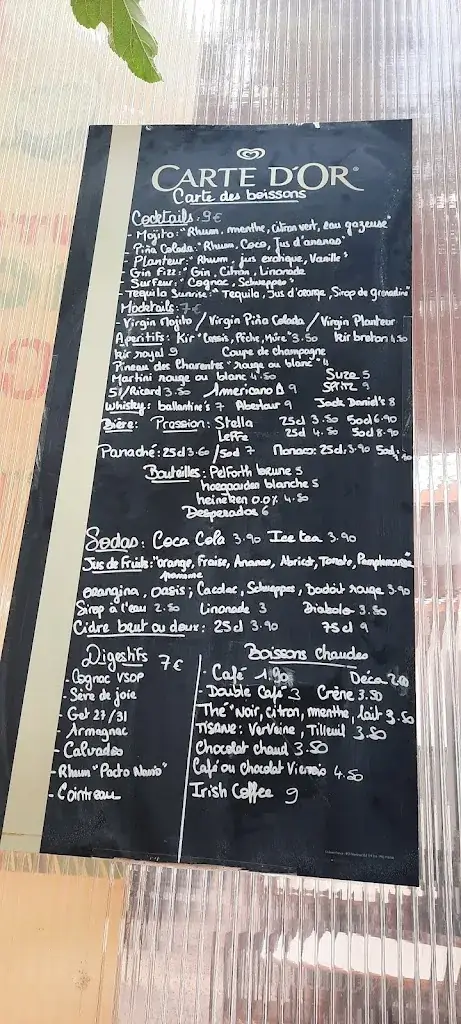 CARTE D'OR
Carte des boissons
Cocktails: 9€
- Mojito: "Rhum, menthe, citron vert, eau gazeuse"
- Piña Colada: "Rhum, Coco, Jus d'ananas"
- Planteur: "Rhum, jus exotique, Vanille"
- Gin Fizz: "Gin, Citron, Limonade
- Surfeur: "Cognac, Schweppes"
- Tequila Sunrise: "Tequila, Jus d'orange, Sirop de grenadine"
Mocktails: 7€
- Virgin Mojito / Virgin Piña Colada / Virgin Planteur
Apéritifs: Kir "Cassis, Pêche, Mûre" 3.50 kir breton 4.50
kir royal 9 Coupe de champagne
Pineau des Charentes "rouge ou blanc" 4
Martini rouge ou blanc 4.50 Suze 5
51/Ricard 3.50 Americano 9 SPRITZ 9
Whisky: ballantine's 7 Aberlour 9 Jack Daniel's 8
Bière: Pression: Stella 25cl 3.50 50cl 6.90
Leffe 25cl 4.50 50cl 8.90
Panaché: 25cl 3.60 / 50cl 7 Monaco: 25cl: 3.90 50cl:
Bouteilles: Pelforth brune 5
hoegaarden blanche 5
heineken 0.0% 4.50
Desperados 6
Sodas: Coca Cola 3.90 Ice tea 3.90
Jus de Fruits: "orange, Fraise, Ananas, Abricot, Tomate, Pamplemousse
pomme
orangina, oasis, Cacolac, Schweppes, Badoit rouge 3.90
Sirop à l'eau 2.50 Limonade 3 Diabolo 3.50
Cidre brut ou doux: 25cl 3.90 75cl 9
Digestifs 7€
- Cognac VSOP
- Sève de joie
- Get 27/31
- Armagnac
- Calvados
- Rhum "Pacto Navio"
- Cointreau
Boissons chaudes
- Café 1.90 Déca 2.00
- Double Café 3 Crème 3.50
Thé "Noir, citron, menthe, lait 3.50
Tisane: Verveine, Tilleul 3.50
Chocolat chaud 3.50
Café ou Chocolat Viennois 4.50
Irish Coffee 9